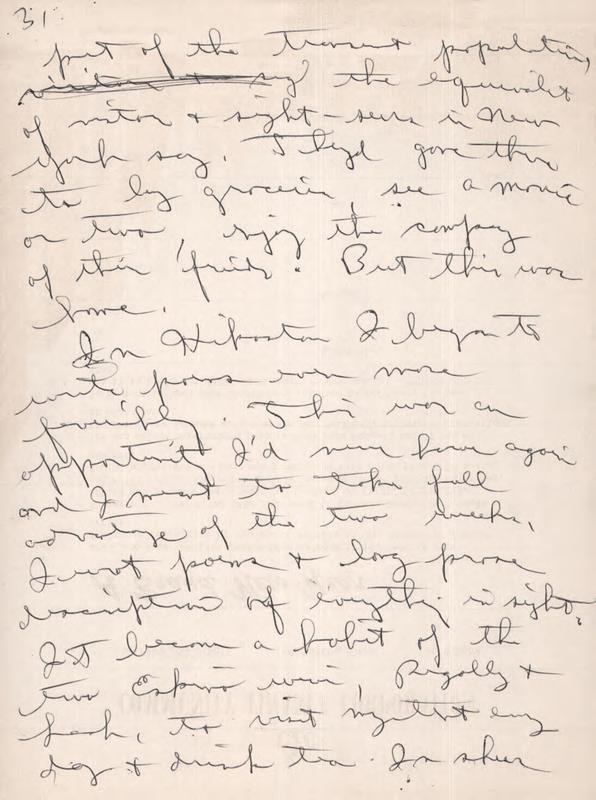 31
part of the transient population,
visitors + say the equivalent
of visitors + sight-seers in New
York say. They'd gone there
to buy groceries, see a movie
or two, enjoy the company
of their friends. But this was
home.
In Kikastan I began to
write poems even more
feverishly. This was an
opportunity I'd never have again
and I meant to take full
advantage of the two weeks.
I wrote poems + long prose
description of everything in sight.
It became a habit of the
two Eskimo wives, +
Leah, to visit my tent every
day + drink tea. In sheer